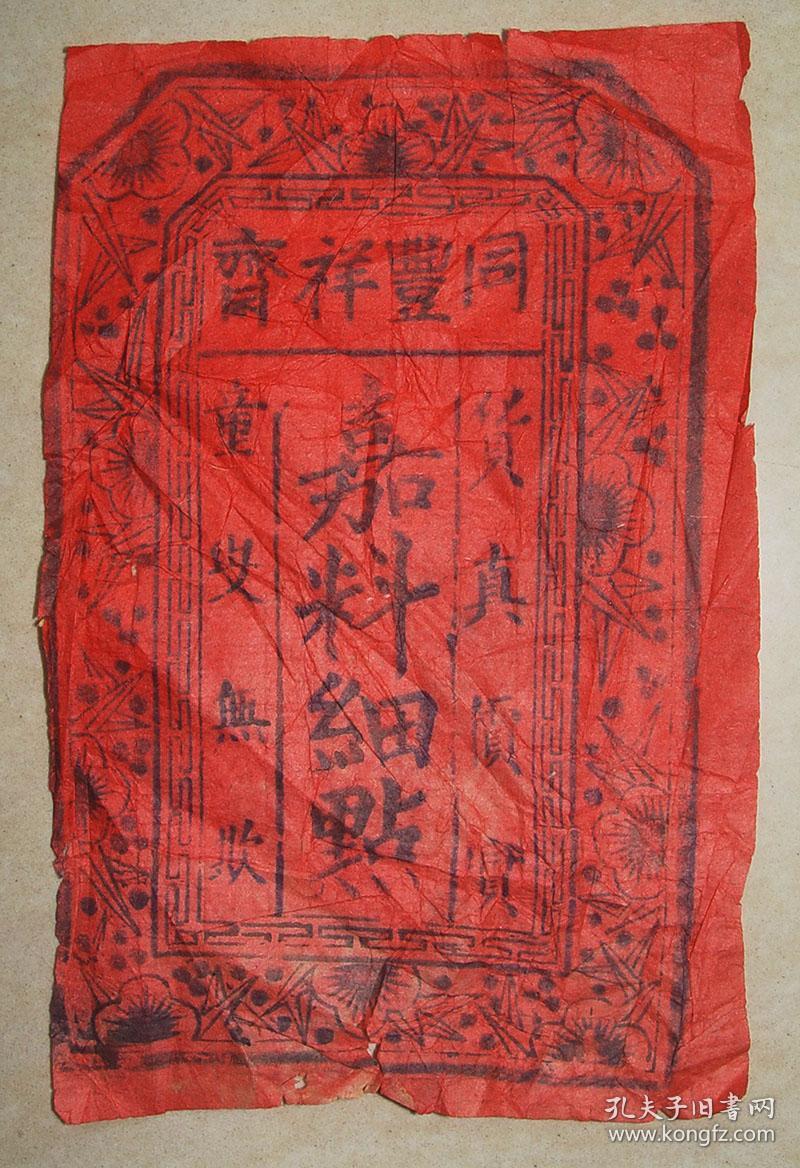 同豐祥齋
貨真價實
嘉料細點
童叟無欺
孔夫子旧書网
www.kongfz.com